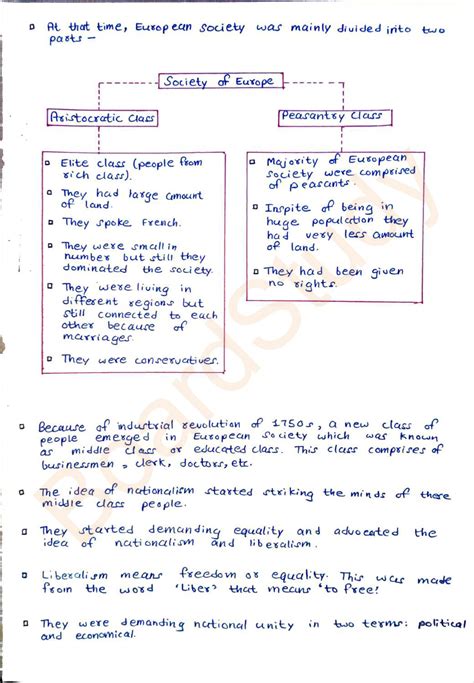 At that time, European society was mainly divided into two
parts -
Society of Europe
Aristocratic Class
Elite class (people from
rich class).
They had large amount
of land.
They spoke French.
They were small in
number but still they
dominated the society.
They were living in
different regions but
still connected to each
other because of
marriages.
They were conservatives.
Peasantry Class
Majority of European
society were comprised
of peasants.
Inspite of being in
huge population they
had very less amount
of land.
They had been given
no rights.
Because of industrial revolution of 1750s, a new class of
people emerged in European society which was known
as middle class or educated class. This class comprises of
businessmen, clerk, doctors, etc.
The idea of nationalism started striking the minds of there
middle class people.
They started demanding equality and advocated the
idea of nationalism and liberalism.
Liberalism means freedom or equality. This was made
from the word 'Liber' that means 'to free!
They were demanding national unity in two terms: political
and economical.
BeardStudy